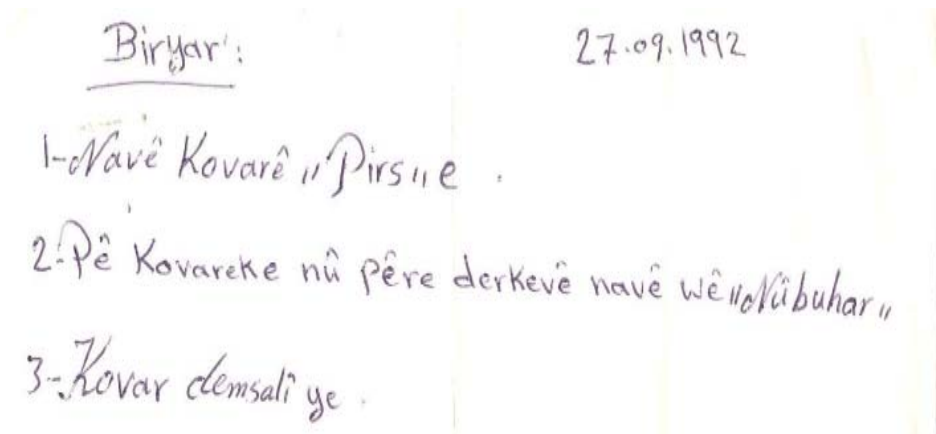 Biryar:
27.09.1992
1-Navê Kovarê "Pirs" e .
2-Pê Kovareke nû pêre derkevê navê wê "Nûbuhar"
3-Kovar demsalî ye .